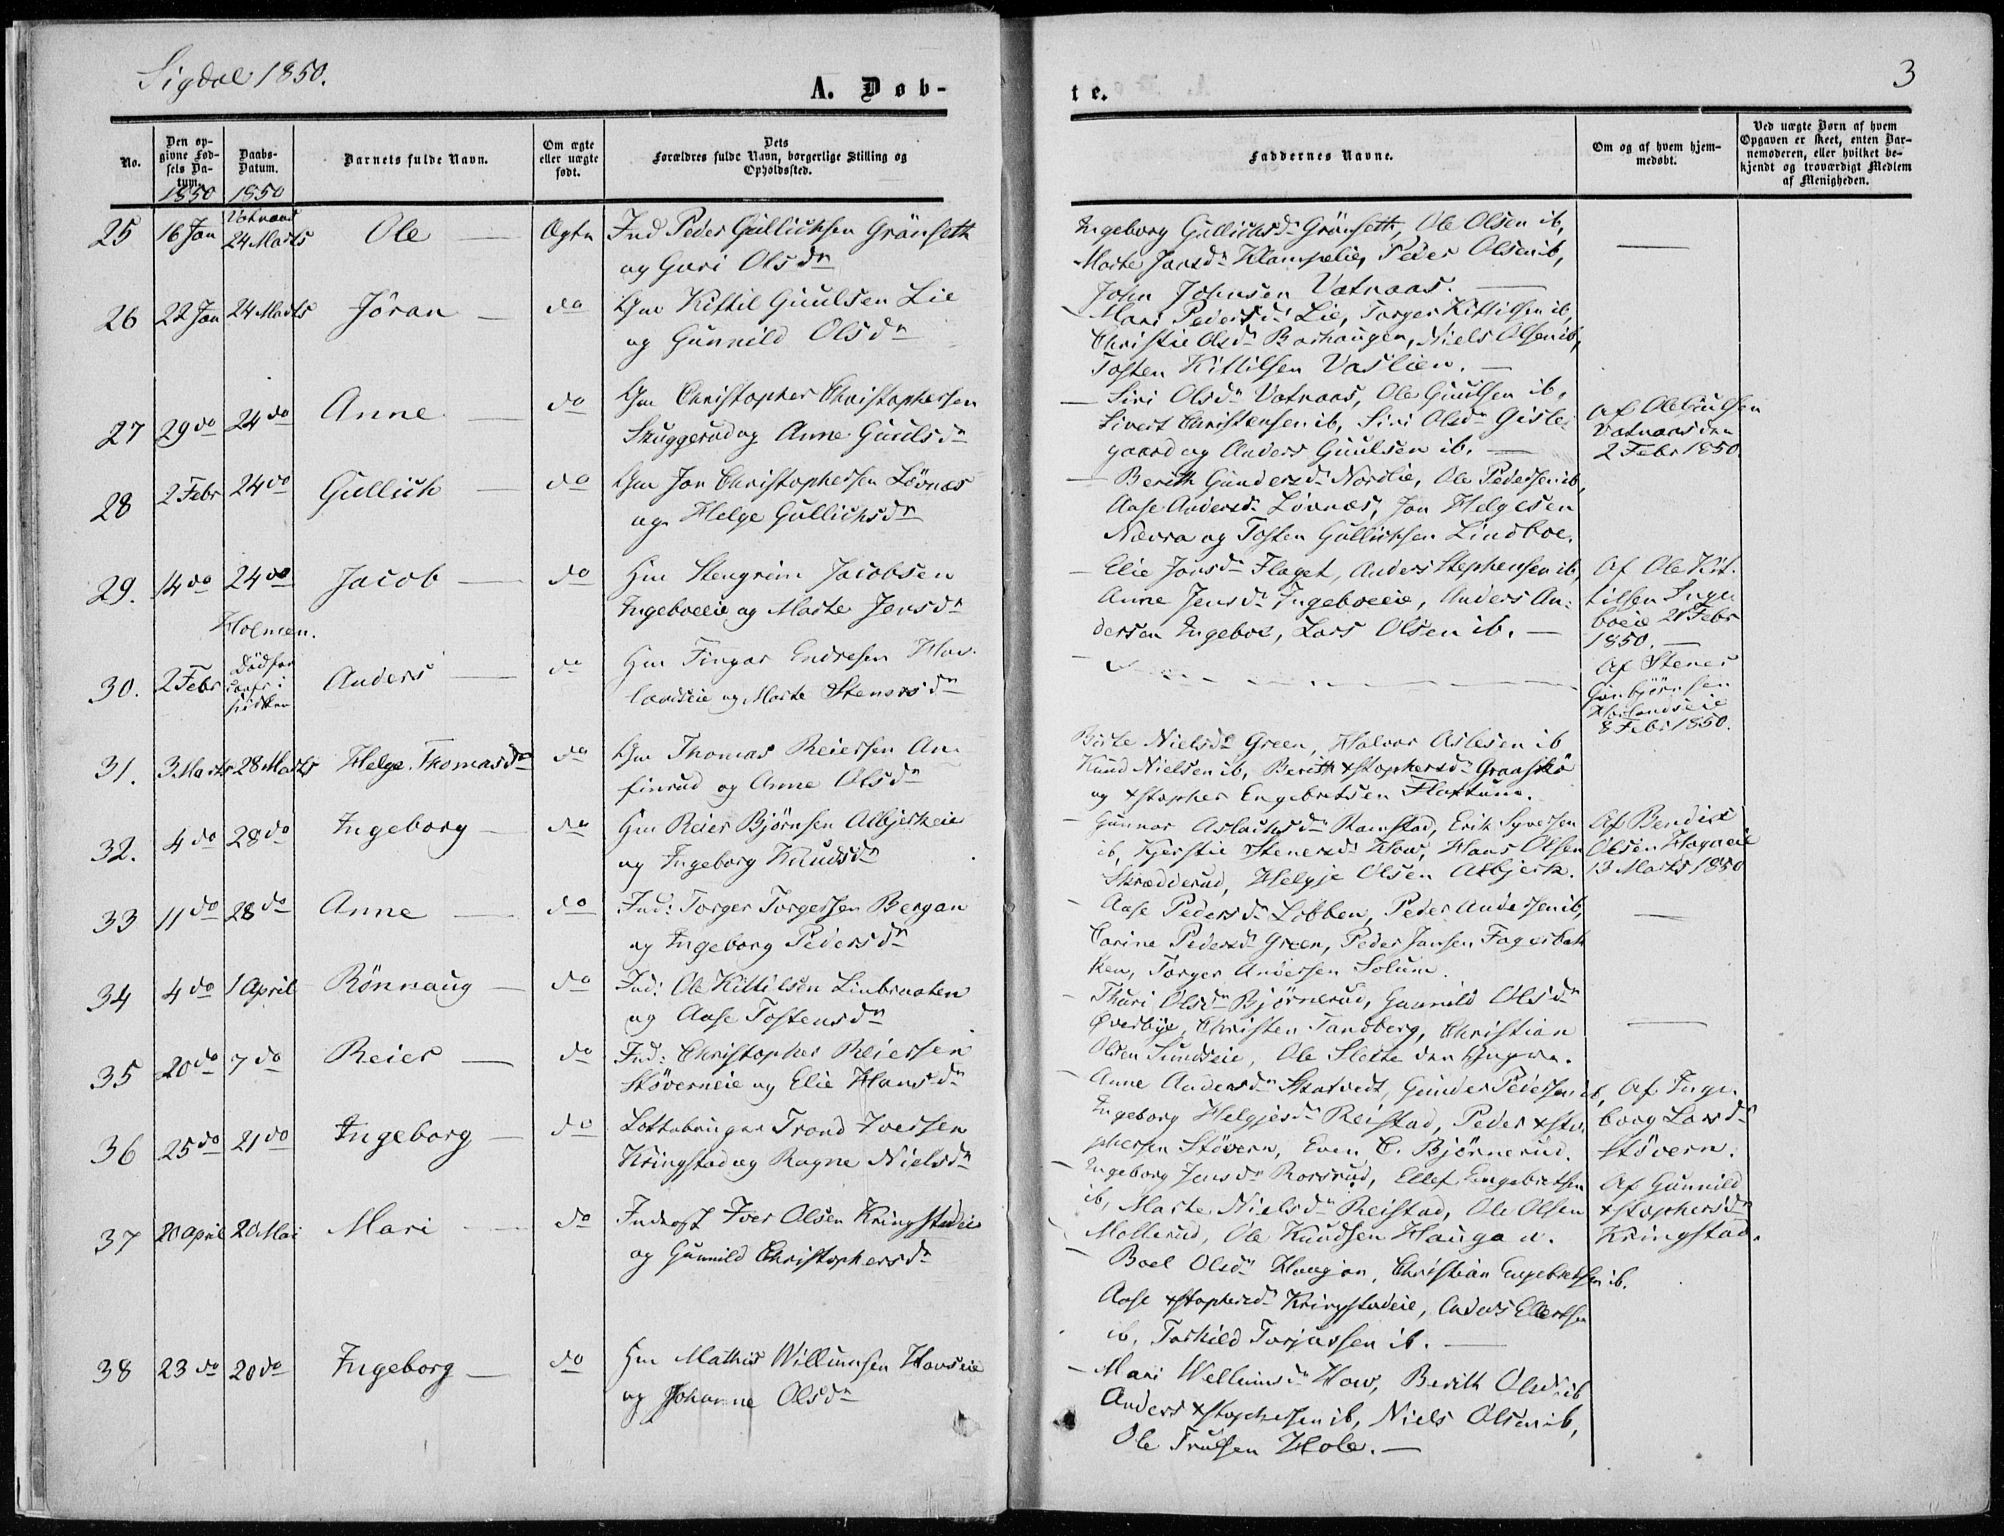 Sigdal 1850.
A. Døb-
te.
3
No.
Den op-
givne Fød-
sels Da-
tum.
1850
Daabs-
Datum.
1850
Barnets fulde Navn.
Om ægte
eller uægte
født.
Dets
Forældres fulde Navn, borgerlige Stilling og
Opholdssted.
Faddernes Navne.
Om og af hvem hjem-
medøbt.
Ved uægte Børn af hvem
Opgaven er skeet, enten Bar-
nemoderen, eller hvilket be-
kjendt og troværdigt Medlem
af Menigheden.
25 16 Jan Vatnaas 24 Marts Ole Ægte Ind Peder Gullichsen Grönseth
og Guri Olsdr
Ingeborg Gullichsdr Grönseth, Ole Olsen ib,
Marte Jansdr Klampelie, Peder Olsen ib,
John Johnsen Vatnaas.
26 22 Jan 24 Marts Jöran do Hm Kittil Guulsen Lie
og Gunnild Olsdr
Mari Pedersdr Lie, Torger Kittilsen ib,
Christie Olsdr Barhaugen, Niels Olsen ib,
Tosten Kittilsen Vaslien.
27 29 do 24 do Anne do Hm Christopher Christophersen
Skuggerud og Anne Guulsdr
Siri Olsdr Vatnaas, Ole Guulsen ib,
Sivert Christensen ib, Siri Olsdr Gisle-
gaard og Anders Guulsen ib.
Af Ole Guulsen
Vatnaas den
2 Febr 1850
28 2 Febr 24 do Gullich do Hm Jon Christophersen Lövnæs
og Helge Gullichsdr
Berith Gundersdr Nordlie, Ole Pedersen ib,
Aase Andersdr Lövnæs, Jon Helgesen
Nævra og Tosten Gullichsen Lindboe.
29. 14 do 24 do Jacob do Hm Stengrim Jacobsen
Ingeboeeie og Marte Jensdr
Elie Jonsdr Flaget, Anders Stephensen ib,
Anne Jensdr Ingeboeeie, Anders An-
dersen Ingeboe, Lars Olsen ib.
Af Ole Kit-
tilsen Inge
boeie 21 Febr
1850.
Holmen.
30. 2 Febr Anders do Hm Fingar Endresen Hov-
landseie og Marte Stenersdr
Af Stener
Hovlandseie
8 Febr 1850.
31. 3 Marts 28 Marts Helge Thomasdr do Hm Thomas Reiersen An-
finrud og Anne Olsdr
Birte Nielsdr Green, Halvor Aslesen ib
Knud Nielsen ib, Berith xstophersdr Graaskö
og xstopher Engebretsen Flattum.
32. 4 do 28 do Ingeborg do Hm Reier Björnsen Albjerkeie
og Ingeborg Knudsdr
Gunnor Aslachsdr Ramstad, Erik Syversen
ib, Kjerstie Stenersdr How, Hans Olsen
Skrædderud, Helgje Olsen Albjerk.
Af Bendix
Olsen Hagaeie
13 Marts 1850
33 11 do 28 do Anne do Ind: Torger Torgersen Bergan
og Ingeborg Pedersdr
Aase Pedersdr Lobben, Peder Andersen ib,
Carine Pedersdr Green, Peder Jansen Fagerbak-
ken, Torger Andersen Solum.
34 4 do 1 April Rönnaug do Ind: Ole Kittilsen Linbraaten
og Aase Tostensdr
Thuri Olsdr Björnerud, Gunnild Olsdr
Överbye, Christen Tandberg, Christian
Olsen Sundseie, Ole Slette den Yngre.
35 20 do 7 do Reier do Ind: Christopher Reiersen
Stöverneie og Elie Hansdr
Anne Andersdr Skatvedt, Gunder Pedersen ib,
Ingeborg Helgjesdr Reistad, Peder xsto-
phersen Stövern, Even C. Björnerud.
Af Inge-
borg Larsdr
Stövern.
36 25 do 21 do Ingeborg do Lottebruger Trond Iversen
Kringstad og Ragne Nielsdr
Ingeborg Jensdr Rorsrud, Ellef Engebretsen
ib, Marte Nielsdr Reistad, Ole Olsen
Mollerud, Ole Knudsen Haugan.
Af Gunnild
xstophersdr
Kringstad.
37 20 April 20 Mai Mari do Inderst Iver Olsen Kringstadeie
og Gunnild Christophersdr
Boel Olsdr Haugan, Christian Engebretsen ib.
Aase xstophersdr Kringstadeie, Anders Ellertsen
ib, Torkild Torjussen ib.
38 23 do 20 do Ingeborg do Hm Mathis Willumsen Howseie
og Johanne Olsdr
Mari Wellumsdr How, Berith Olsdr ib
Anders xstophersen ib, Niels Olsen ib,
Ole Trulsen Hole.